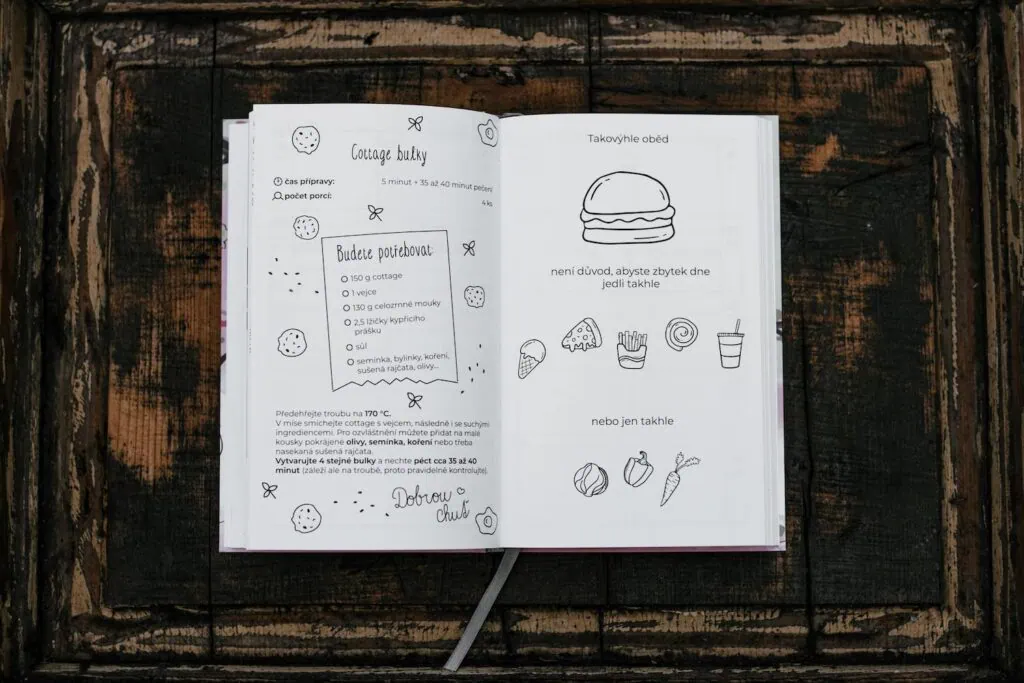 Cottage bulky
čas přípravy: 5 minut + 35 až 40 minut pečení
počet porcí: 4 ks
Budete potřebovat
150 g cottage
1 vejce
130 g celozrnné mouky
2,5 lžičky kypřicího
prášku
sůl
semínka, bylinky, koření,
sušená rajčata, olivy...
Předehřejte troubu na 170 °C.
V míse smíchejte cottage s vejcem, následně i se suchými
ingrediencemi. Pro ozvláštnění můžete přidat na malé
kousky pokrájené olivy, semínka, koření nebo třeba
nasekaná sušená rajčata.
Vytvarujte 4 stejné bulky a nechte péct cca 35 až 40
minut (záleží ale na troubě, proto pravidelně kontrolujte).
Dobrou
chuť
Takovýhle oběd
není důvod, abyste zbytek dne
jedli takhle
nebo jen takhle